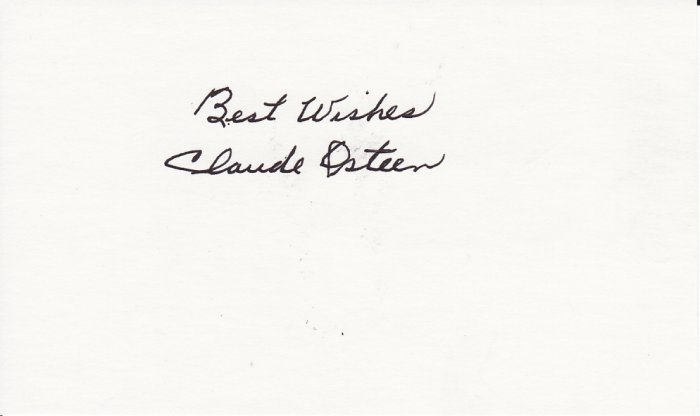 Best Wishes
Claude Osteen